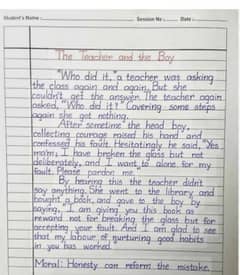 Student's Name : Session No : Date :
The Teacher and the Boy
"Who did it," a teacher was asking
the class again and again. But she
couldn't get the answer. The teacher again
asked, "Who did it?" Covering some steps
again she got nothing.
After sometime the head boy,
collecting courage raised his hand and
confessed his fault. Hesitatingly he said, "Yes
ma'm, I have broken the glass but not
deliberately, and I want to alone for my
fault. Please pardon me."
By hearing this the teacher didn't
say anything. She went to the library and
bought a book, and gave to the boy by
saying, "I am giving you this book as
reward not for breaking the glass but for
accepting your fault. And I am glad to see
that my labour of nurturing good habits
in you has worked."
Moral: Honesty can reform the mistake.